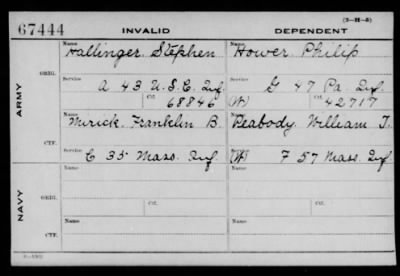 67444 INVALID DEPENDENT (3-H-5)
Name Name
Hallinger. Stephen Hower Philip
ORIG. Service Service
A 43 U.S.C. Inf. G 47 Pa. Inf.
Ctf. 68846 (W) Ctf. 42717
ARMY
Name Name
Mirick. Franklin B. Peabody. William T.
CTF. Service Service
C 35 Mass. Inf. (W) F 57 Mass. Inf
Name Name
ORIG.
Service Ctf. Service Ctf.
NAVY
Name Name
CTF.
Service Service